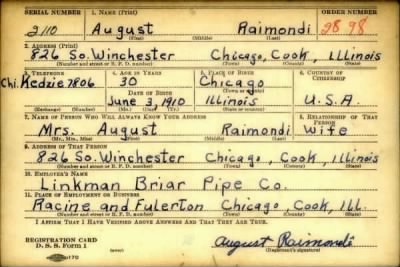 SERIAL NUMBER 1. NAME (Print) ORDER NUMBER
2110 August Raimondi 2898
(First) (Middle) (Last)
2. ADDRESS (Print)
826 So. Winchester Chicago, Cook, Illinois
(Number and street or R. F. D. number) (Town) (County) (State)
3. TELEPHONE 4. AGE IN YEARS 5. PLACE OF BIRTH 6. COUNTRY OF CITIZENSHIP
Chi. Kedzie 7806 30 Chicago
DATE OF BIRTH (Town or county)
June 3, 1910 Illinois U.S.A.
(Exchange) (Number) (Mo.) (Day) (Yr.) (State or country)
7. NAME OF PERSON WHO WILL ALWAYS KNOW YOUR ADDRESS 8. RELATIONSHIP OF THAT PERSON
Mrs. August Raimondi Wife
(Mr., Mrs., Miss) (First) (Middle) (Last)
9. ADDRESS OF THAT PERSON
826 So. Winchester Chicago, Cook, Illinois
(Number and street or R. F. D. number) (Town) (County) (State)
10. EMPLOYER'S NAME
Linkman Briar Pipe Co.
11. PLACE OF EMPLOYMENT OR BUSINESS
Racine and Fulerton Chicago, Cook, Ill.
(Number and street or R. F. D. number) (Town) (County) (State)
I AFFIRM THAT I HAVE VERIFIED ABOVE ANSWERS AND THAT THEY ARE TRUE.
REGISTRATION CARD
D. S. S. Form 1 August Raimondi
(Registrant's signature)